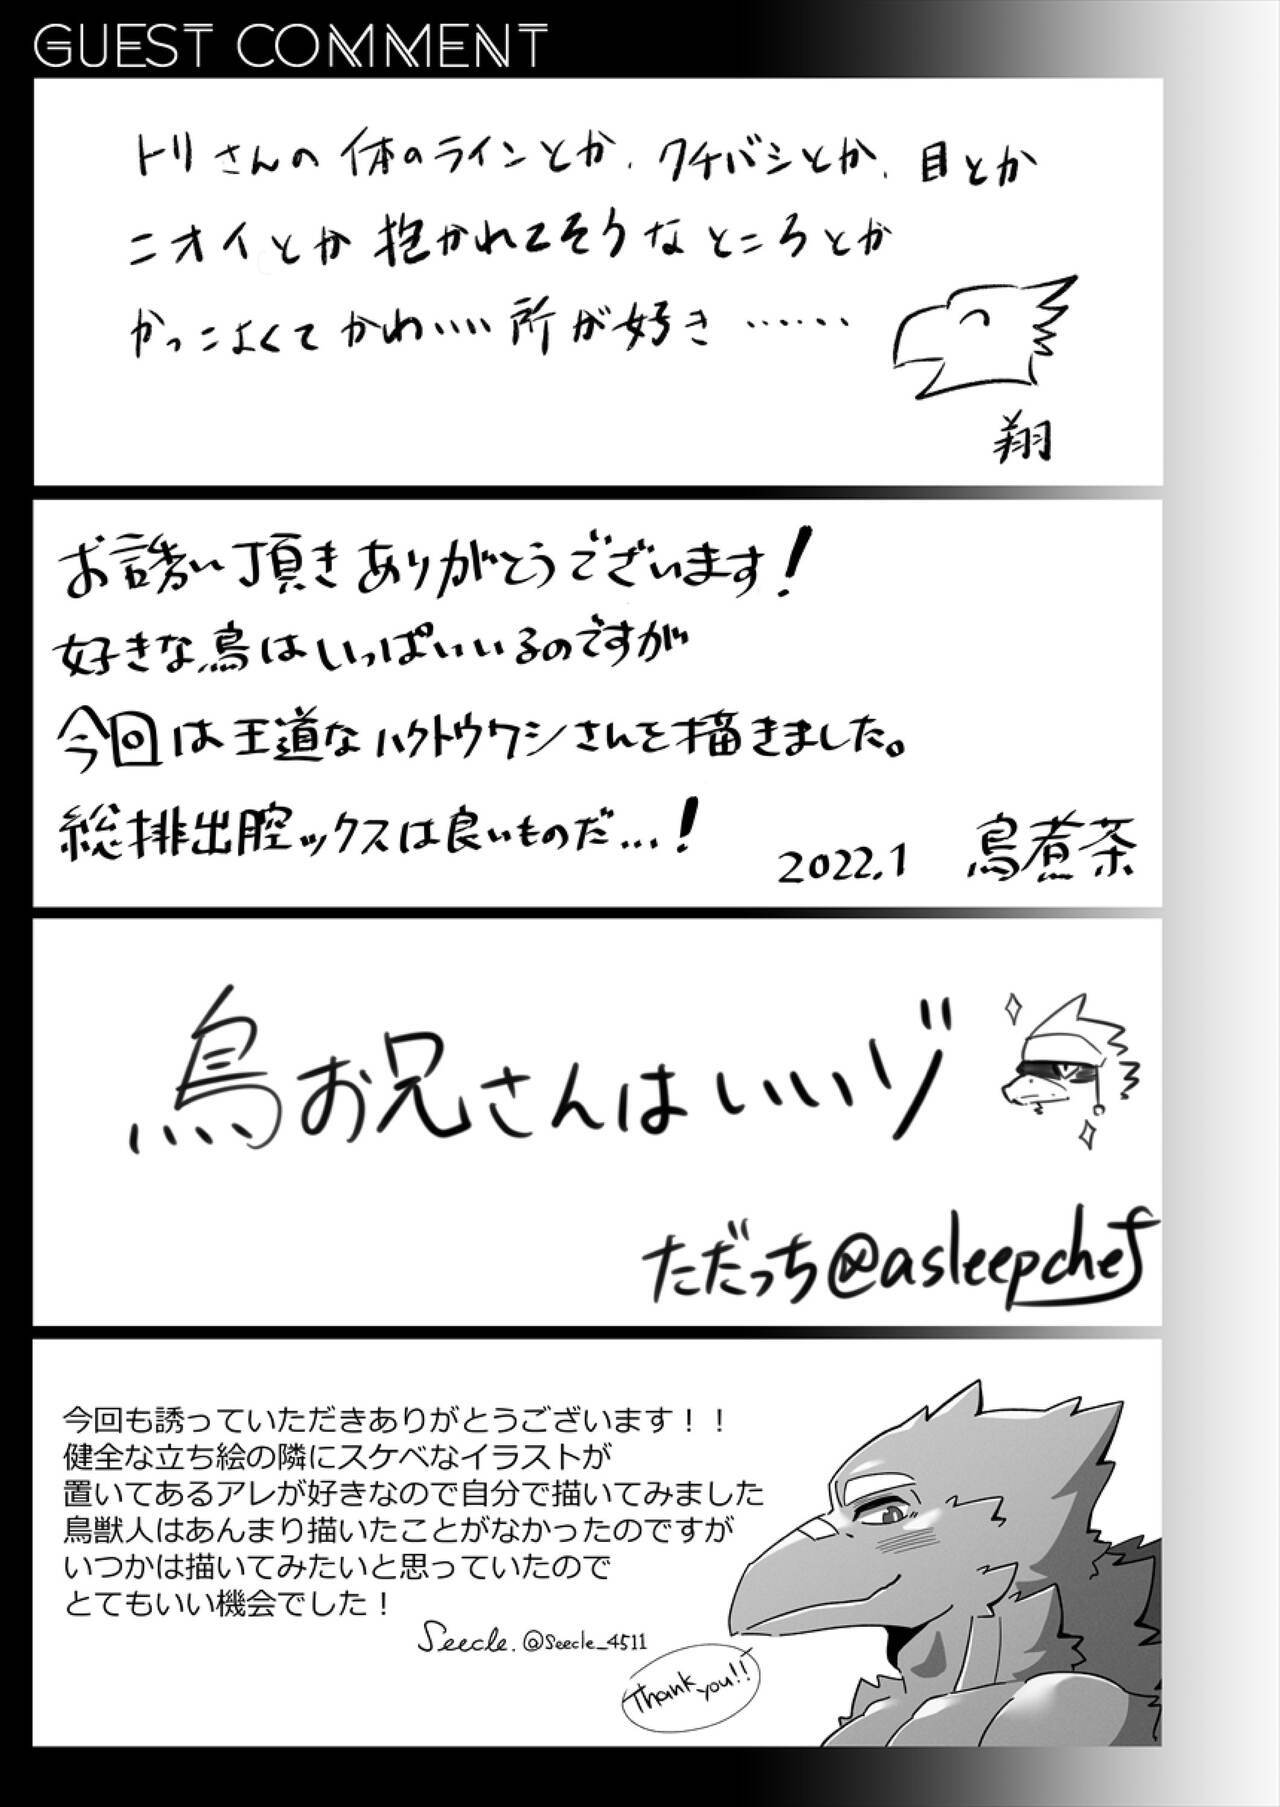 GUEST COMMENT
トリさんの体のラインとか、クチバシとか、目とか
ニオイとか抱かれてそうなところとか
かっこよくてかわいい所が好き……
翔
お誘い頂きありがとうございます！
好きな鳥はいっぱいいるのですが
今回は王道なハクトウワシさんを描きました。
総排出腔ックスは良いものだ…！
2022.1 鳥煮茶
鳥お兄さんはいいゾ
ただっち@asleepchef
今回も誘っていただきありがとうございます！！
健全な立ち絵の隣にスケベなイラストが
置いてあるアレが好きなので自分で描いてみました
鳥獣人はあんまり描いたことがなかったのですが
いつかは描いてみたいと思っていたので
とてもいい機会でした！
Seecle. @Seecle_4511
Thank you!!